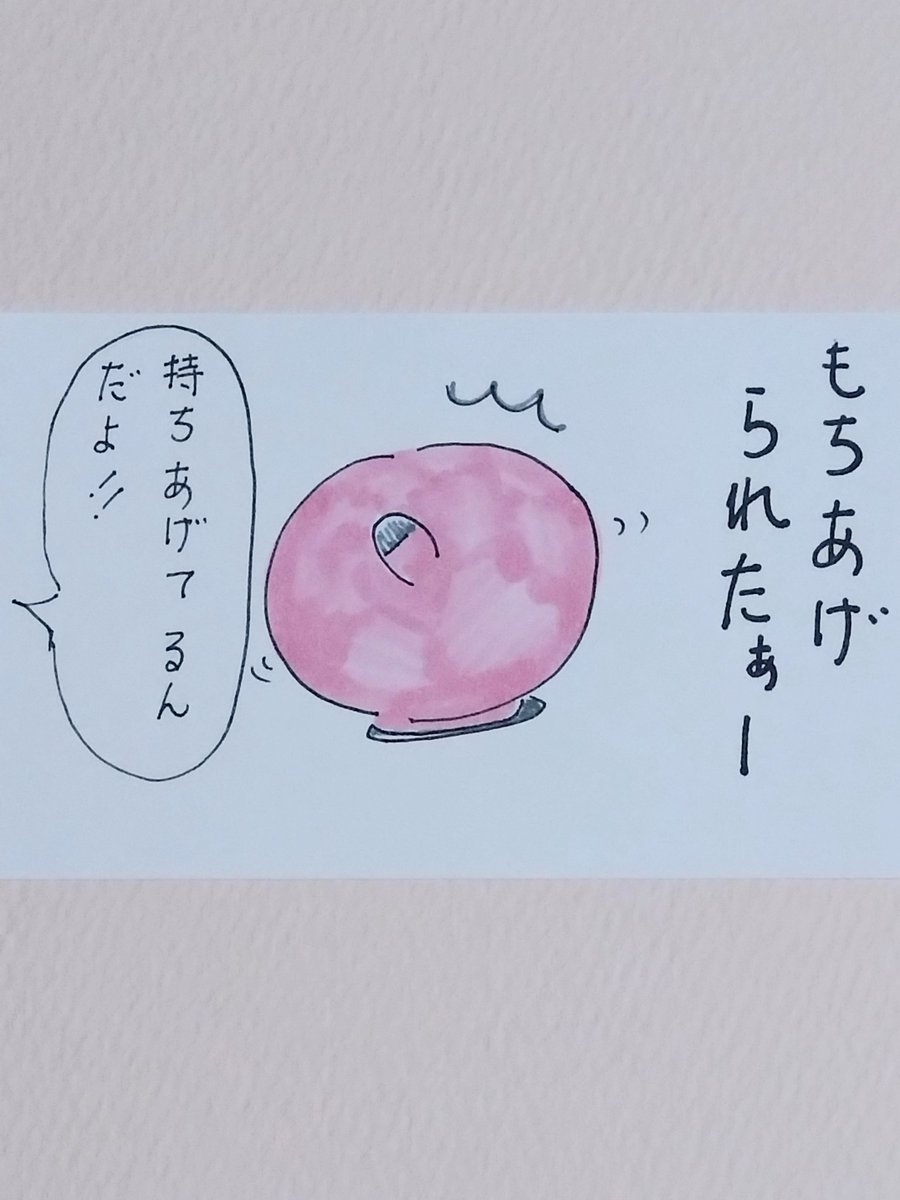 もちあげ
られたぁー
持ちあげてるん
だよ!!